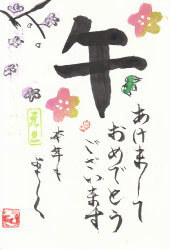 午
あけまして
おめでとう
ございます
本年も
よろしく
元旦